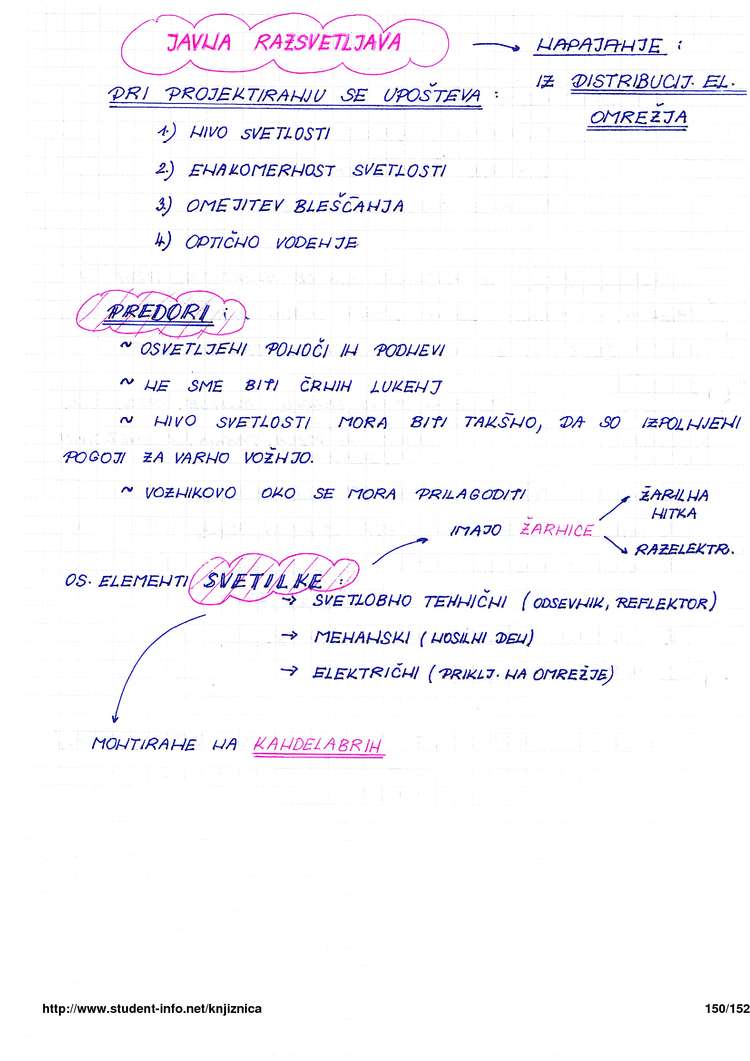 JAVNA RAZSVETLJAVA → NAPAJANJE :
IZ DISTRIBUCIJ. EL.
OMREŽJA
PRI PROJEKTIRANJU SE UPOŠTEVA :
1.) NIVO SVETLOSTI
2.) ENAKOMERNOST SVETLOSTI
3.) OMEJITEV BLEŠČANJA
4.) OPTIČNO VODENJE
PREDORI :
~ OSVETLJENI PONOČI IN PODNEVI
~ NE SME BITI ČRNIH LUKENJ
~ NIVO SVETLOSTI MORA BITI TAKŠNO, DA SO IZPOLNJENI
POGOJI ZA VARNO VOŽNJO.
~ VOZNIKOVO OKO SE MORA PRILAGODITI
ŽARILNA
NITKA
IMAJO ŽARNICE
RAZELEKTR.
OS. ELEMENTI SVETILKE :
→ SVETLOBNO TEHNIČNI (ODSEVNIK, REFLEKTOR)
→ MEHANSKI (NOSILNI DEL)
→ ELEKTRIČNI (PRIKLJ. NA OMREŽJE)
MONTIRANE NA KANDELABRIH
http://www.student-info.net/knjiznica
150/152